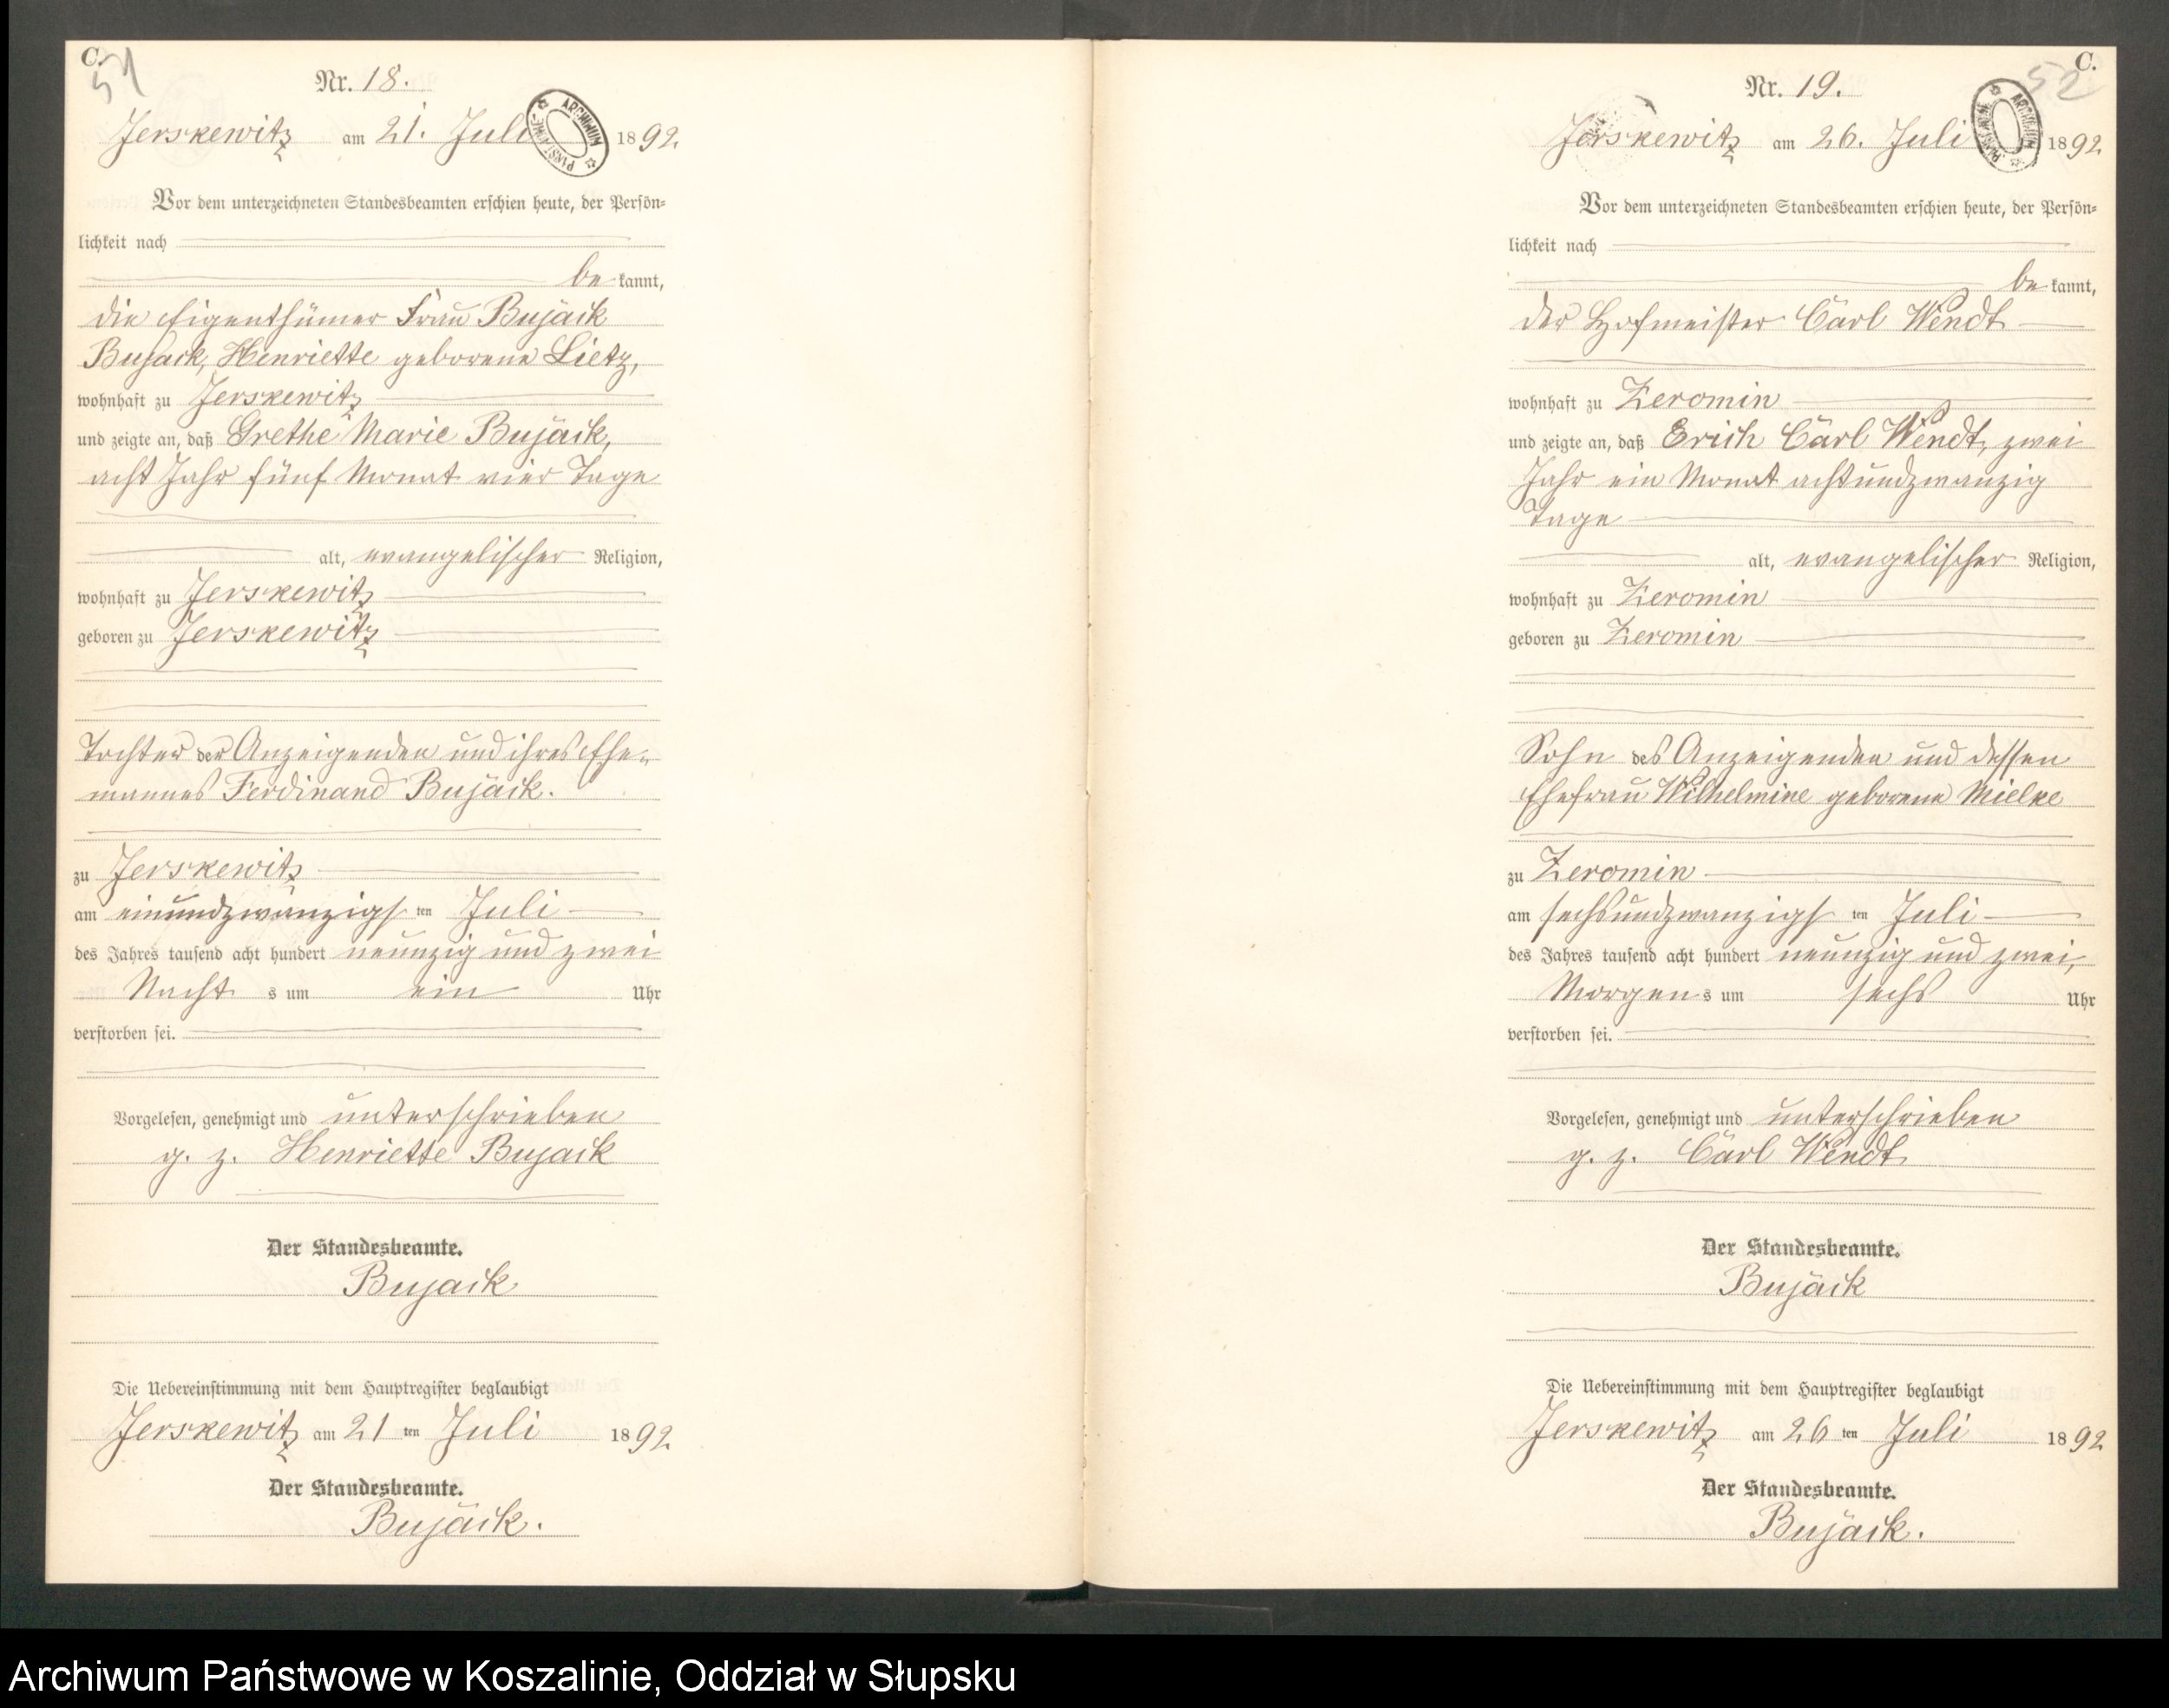 C.
51
Nr. 18.
Jerskewitz am 21. Juli 1892.
ARCHIWUM PAŃSTWOWE
Vor dem unterzeichneten Standesbeamten erschien heute, der Persön-
lichkeit nach
be kannt,
die Eigenthümer Frau Bujack
Bujack, Henriette geborene Lietz,
wohnhaft zu Jerskewitz
und zeigte an, daß Grethe Marie Bujack,
acht Jahr fünf Monat vier Tage
alt, evangelischer Religion,
wohnhaft zu Jerskewitz
geboren zu Jerskewitz
Tochter der Anzeigenden und ihres Ehe-
mannes Ferdinand Bujack.
zu Jerskewitz
am einundzwanzigs ten Juli
des Jahres tausend acht hundert neunzig und zwei
Nacht s um ein Uhr
verstorben sei.
Vorgelesen, genehmigt und unterschrieben
g. z. Henriette Bujack
Der Standesbeamte.
Bujack
Die Uebereinstimmung mit dem Hauptregister beglaubigt
Jerskewitz am 21 ten Juli 1892
Der Standesbeamte.
Bujack.
C.
52
Nr. 19.
Jerskewitz am 26. Juli 1892
ARCHIWUM PAŃSTWOWE
Vor dem unterzeichneten Standesbeamten erschien heute, der Persön-
lichkeit nach
be kannt,
der Hofmeister Carl Wendt
wohnhaft zu Zeromin
und zeigte an, daß Erich Carl Wendt, zwei
Jahr ein Monat achtundzwanzig
Tage
alt, evangelischer Religion,
wohnhaft zu Zeromin
geboren zu Zeromin
Sohn des Anzeigenden und dessen
Ehefrau Wilhelmine geborene Mielke
zu Zeromin
am sechsundzwanzigs ten Juli
des Jahres tausend acht hundert neunzig und zwei,
Morgen s um sechs Uhr
verstorben sei.
Vorgelesen, genehmigt und unterschrieben
g. z. Carl Wendt
Der Standesbeamte.
Bujack
Die Uebereinstimmung mit dem Hauptregister beglaubigt
Jerskewitz am 26 ten Juli 1892
Der Standesbeamte.
Bujack.
Archiwum Państwowe w Koszalinie, Oddział w Słupsku